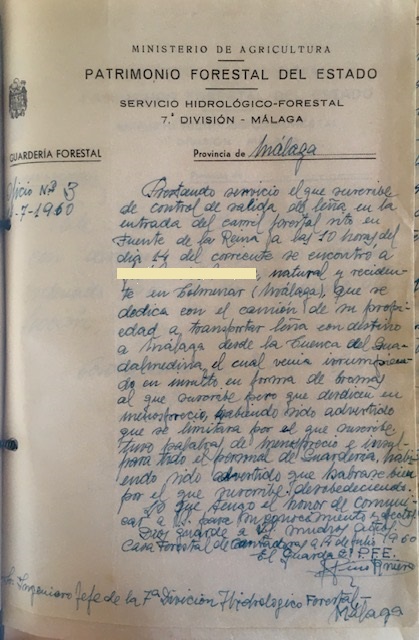 MINISTERIO DE AGRICULTURA
PATRIMONIO FORESTAL DEL ESTADO
SERVICIO HIDROLÓGICO-FORESTAL
7.ª DIVISIÓN - MÁLAGA
GUARDERÍA FORESTAL
Provincia de Málaga
Oficio Nº 3
7-1960
Prestando servicio el que suscribe
de control de salida de leña en la
entrada del carril forestal sito en
Fuente de la Reina a las 10 horas, del
dia 14 del corriente se encontro a
natural y reciden-
te en Colmenar (Málaga), que se
dedica con el camión de su propi-
edad a transportar leña con destino
a Málaga desde la Cuenca del Gua-
dalmedina, el cual venia
en insulto en forma de bromas
al que suscribe pero que
menosprecio, habiendo sido advertido
que se limitara por el que suscribe,
tuvo palabras de menosprecio e insul
para todo el personal de Guarderia, habi
endo sido advertido que hablase bien
por el que suscribe desobedeciendo.
Lo que tengo el honor de comuni-
car a V. para su conocimiento y efectos
Dios guarde a Vd muchos años
Casa Forestal de 14 de julio 1960
El Guarda del P.F.E.
Sr. Ingeniero Jefe de la 7ª División Hidrológico Forestal
Málaga